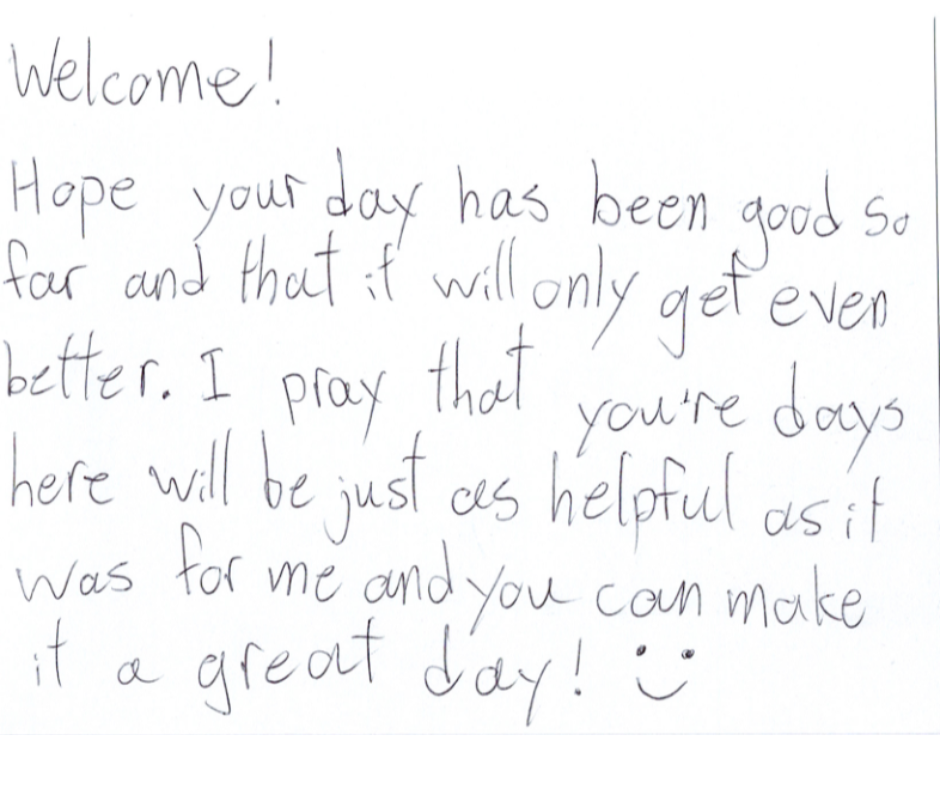 Welcome!
Hope your day has been good so
far and that it will only get even
better. I pray that you're days
here will be just as helpful as it
was for me and you can make
it a great day!